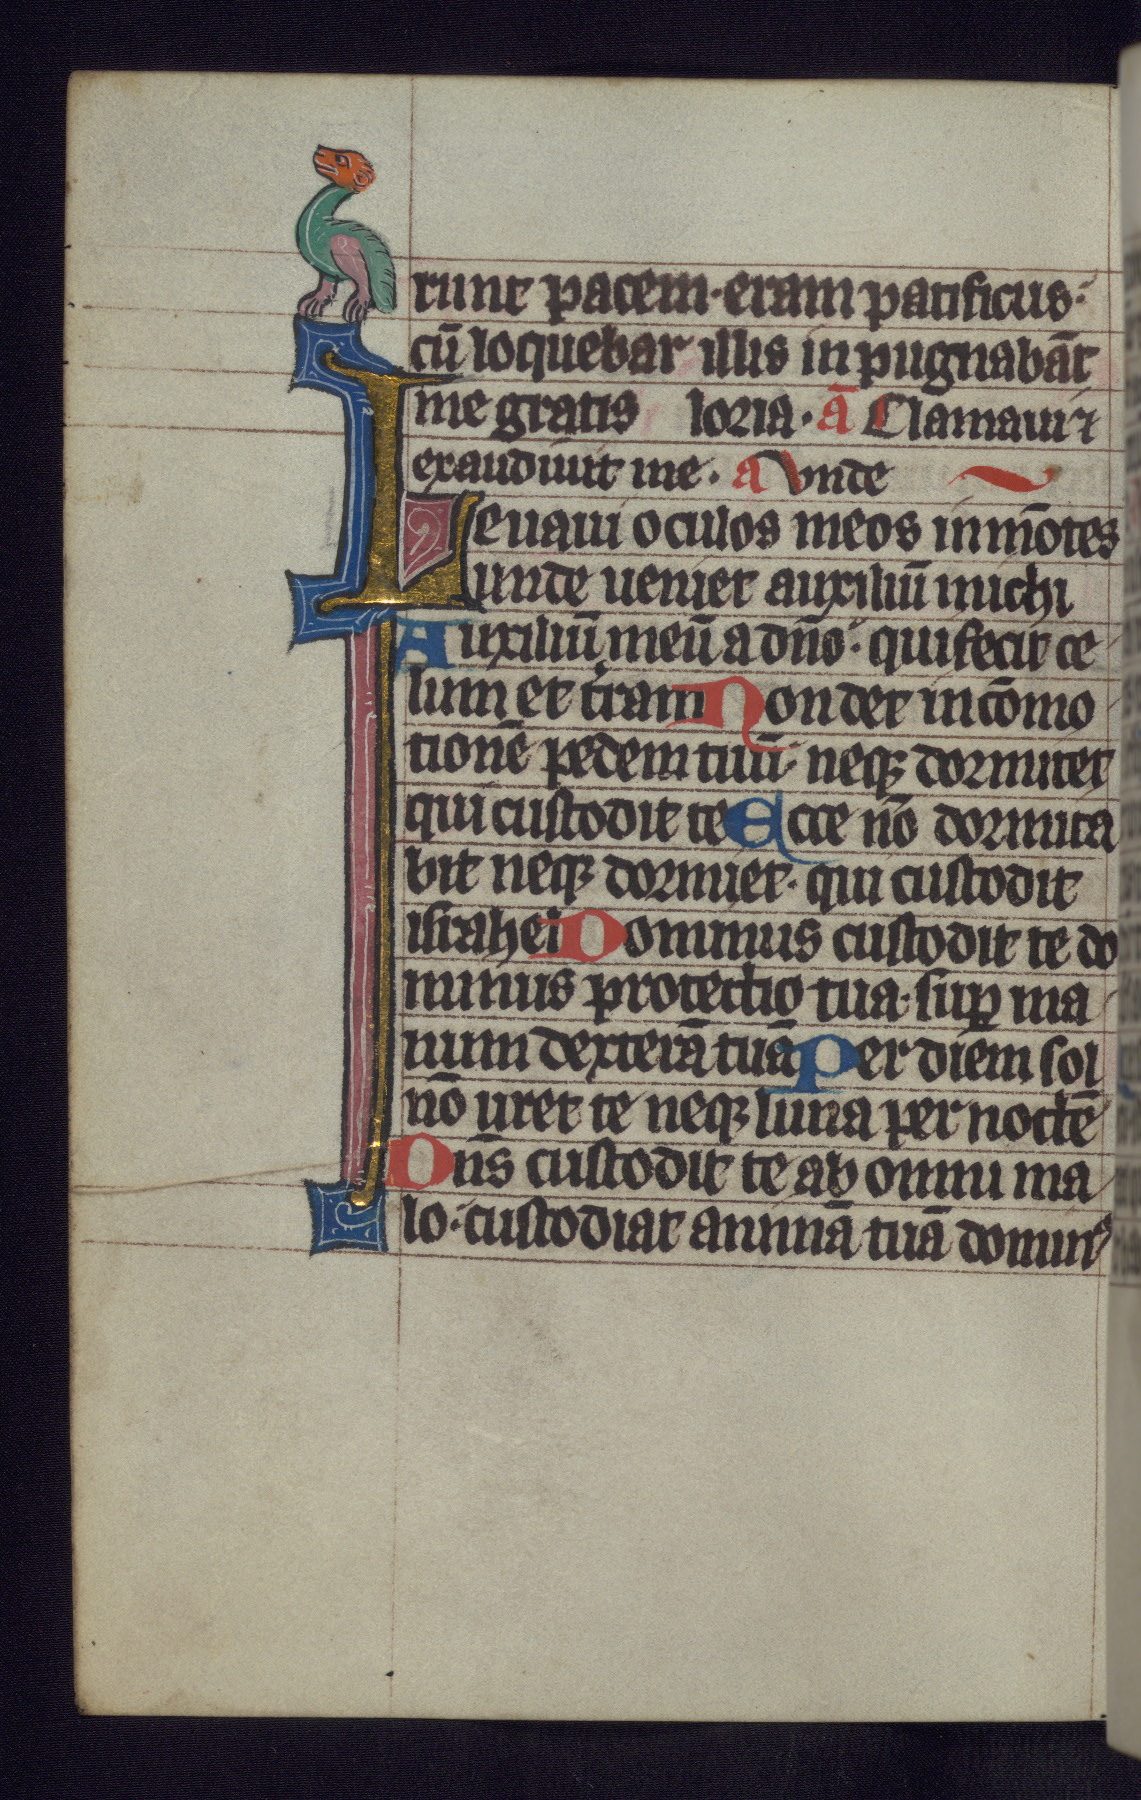 runt pacem·eram patificus·
cū loquebar illis in pugnabāt
me gratis loria· ā Clamaui ⁊
exaudiuit me· a Vnde
Leuaui oculos meos in mōtes
unde ueniet auxiliū michi
Auxiliū meū a dño· qui fecit ce
lum et t̄ram Non det in cōmo
tionē pedem tuū· neqꝫ dormitet
qui custodit te Ecce nō dormita
bit neqꝫ dormiet· qui custodit
israhel Dominus custodit te do
minus protectio tua· suꝑ ma
num dexterā tuā Per diem sol
nō uret te neqꝫ luna per noctē
Dn̄s custodit te ab omni ma
lo· custodiat animā tuā dominꝰ